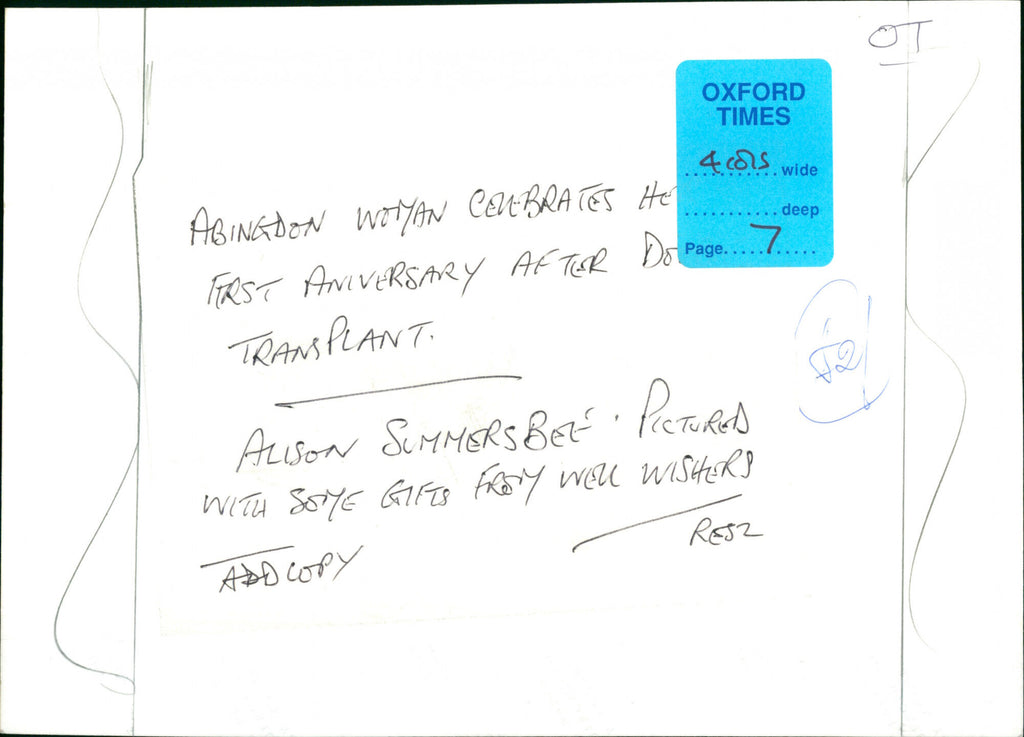 OT
OXFORD
TIMES
4 cols wide
............ deep
Page.....7.......
ABINGDON WOMAN CELEBRATES HE
FIRST ANIVERSARY AFTER DO
TRANSPLANT.
ALISON SUMMERSBEE. PICTURED
WITH SOME GIFTS FROM WELL WISHERS
ADD COPY